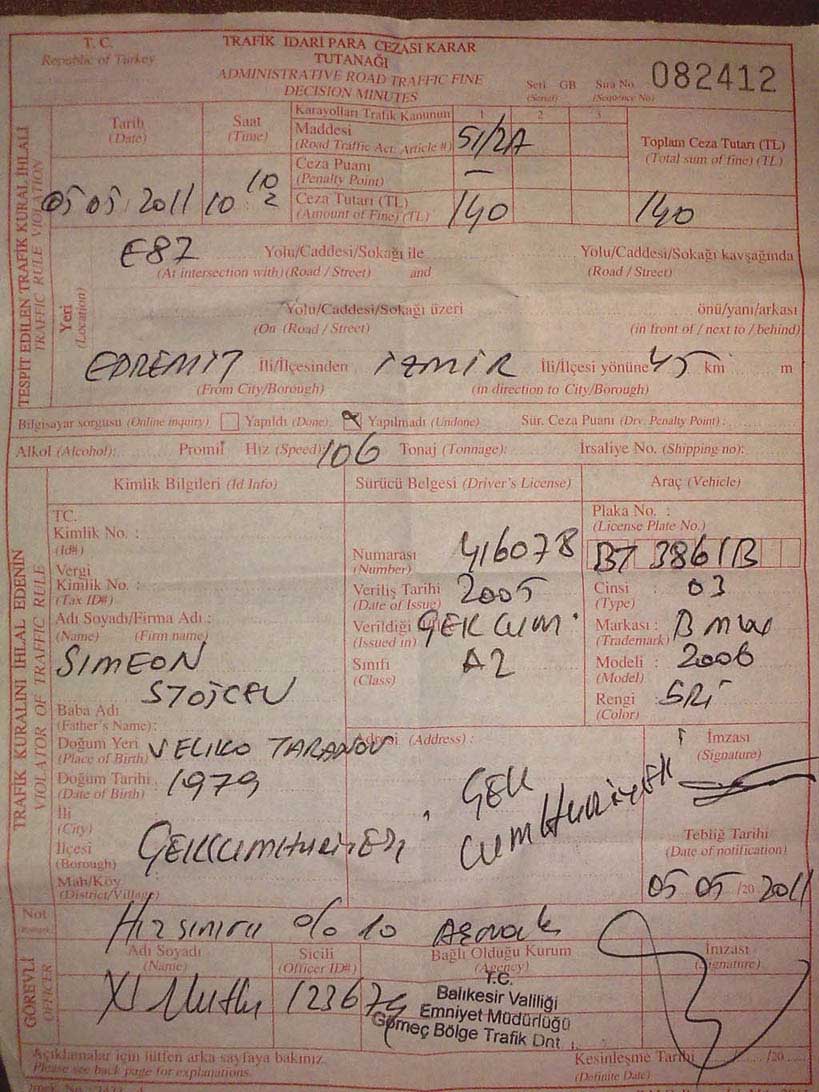 T. C.
Republic of Turkey
TRAFİK İDARİ PARA CEZASI KARAR
TUTANAĞI
ADMINISTRATIVE ROAD TRAFFIC FINE
DECISION MINUTES
Seri GB Sıra No 082412
(Serial) (Sequence No)
TESPİT EDİLEN TRAFİK KURAL İHLALİ
TRAFFIC RULE VIOLATION
Tarih Saat
(Date) (Time)
05 05 2011 10 10
Karayolları Trafik Kanunun 1 2 3
Maddesi 51/2A
(Road Traffic Act: Article #)
Ceza Puanı —
(Penalty Point)
Ceza Tutarı (TL) 140
(Amount of Fine) (TL)
Toplam Ceza Tutarı (TL)
(Total sum of fine) (TL)
140
Yeri
(Location)
E87 Yolu/Caddesi/Sokağı ile Yolu/Caddesi/Sokağı kavşağında
(At intersection with) (Road / Street) and (Road / Street)
Yolu/Caddesi/Sokağı üzeri önü/yanı/arkası
(On (Road / Street) (in front of / next to / behind)
EDREMİT İli/İlçesinden İZMİR İli/İlçesi yönüne 45 km m
(From City/Borough) (in direction to City/Borough)
Bilgisayar sorgusu (Online inquiry) Yapıldı (Done) Yapılmadı (Undone) Sür. Ceza Puanı (Drv. Penalty Point) :
Alkol (Alcohol): Promil Hız (Speed) 106 Tonaj (Tonnage): İrsaliye No. (Shipping no):
TRAFİK KURALINI İHLAL EDENİN
VIOLATOR OF TRAFFIC RULE
Kimlik Bilgileri (Id Info) Sürücü Belgesi (Driver's License) Araç (Vehicle)
TC.
Kimlik No. :
(Id#)
Vergi
Kimlik No. :
(Tax ID#)
Adı Soyadı/Firma Adı :
(Name) (Firm name)
SIMEON
STOJCEV
Baba Adı
(Father's Name):
Doğum Yeri VELIKO TARANOV
(Place of Birth)
Doğum Tarihi 1979
(Date of Birth)
İli
(City)
İlçesi
(Borough)
Mah/Köy
(District/Village)
Numarası 416078
(Number)
Veriliş Tarihi 2005
(Date of Issue)
Verildiği ÇEK CUM.
(Issued in)
Sınıfı A2
(Class)
Adresi (Address) :
ÇEK
Plaka No. :
(License Plate No.)
BT 3861B
Cinsi : 03
(Type)
Markası : BMW
(Trademark)
Modeli : 2006
(Model)
Rengi : GRİ
(Color)
İmzası
(Signature)
Tebliğ Tarihi
(Date of notification)
05 05 /20 2011
Not
Hız sınırını % 10 Aşmak
GÖREVLİ
OFFICER
Adı Soyadı Sicili Bağlı Olduğu Kurum İmzası
(Name) (Officer ID#) (Agency) (Signature)
T.C.
Balıkesir Valiliği
Emniyet Müdürlüğü
Gömeç Bölge Trafik Dnt
Açıklamalar için lütfen arka sayfaya bakınız.
Please see back page for explanations.
Kesinleşme Tarihi /20
(Definite Date)